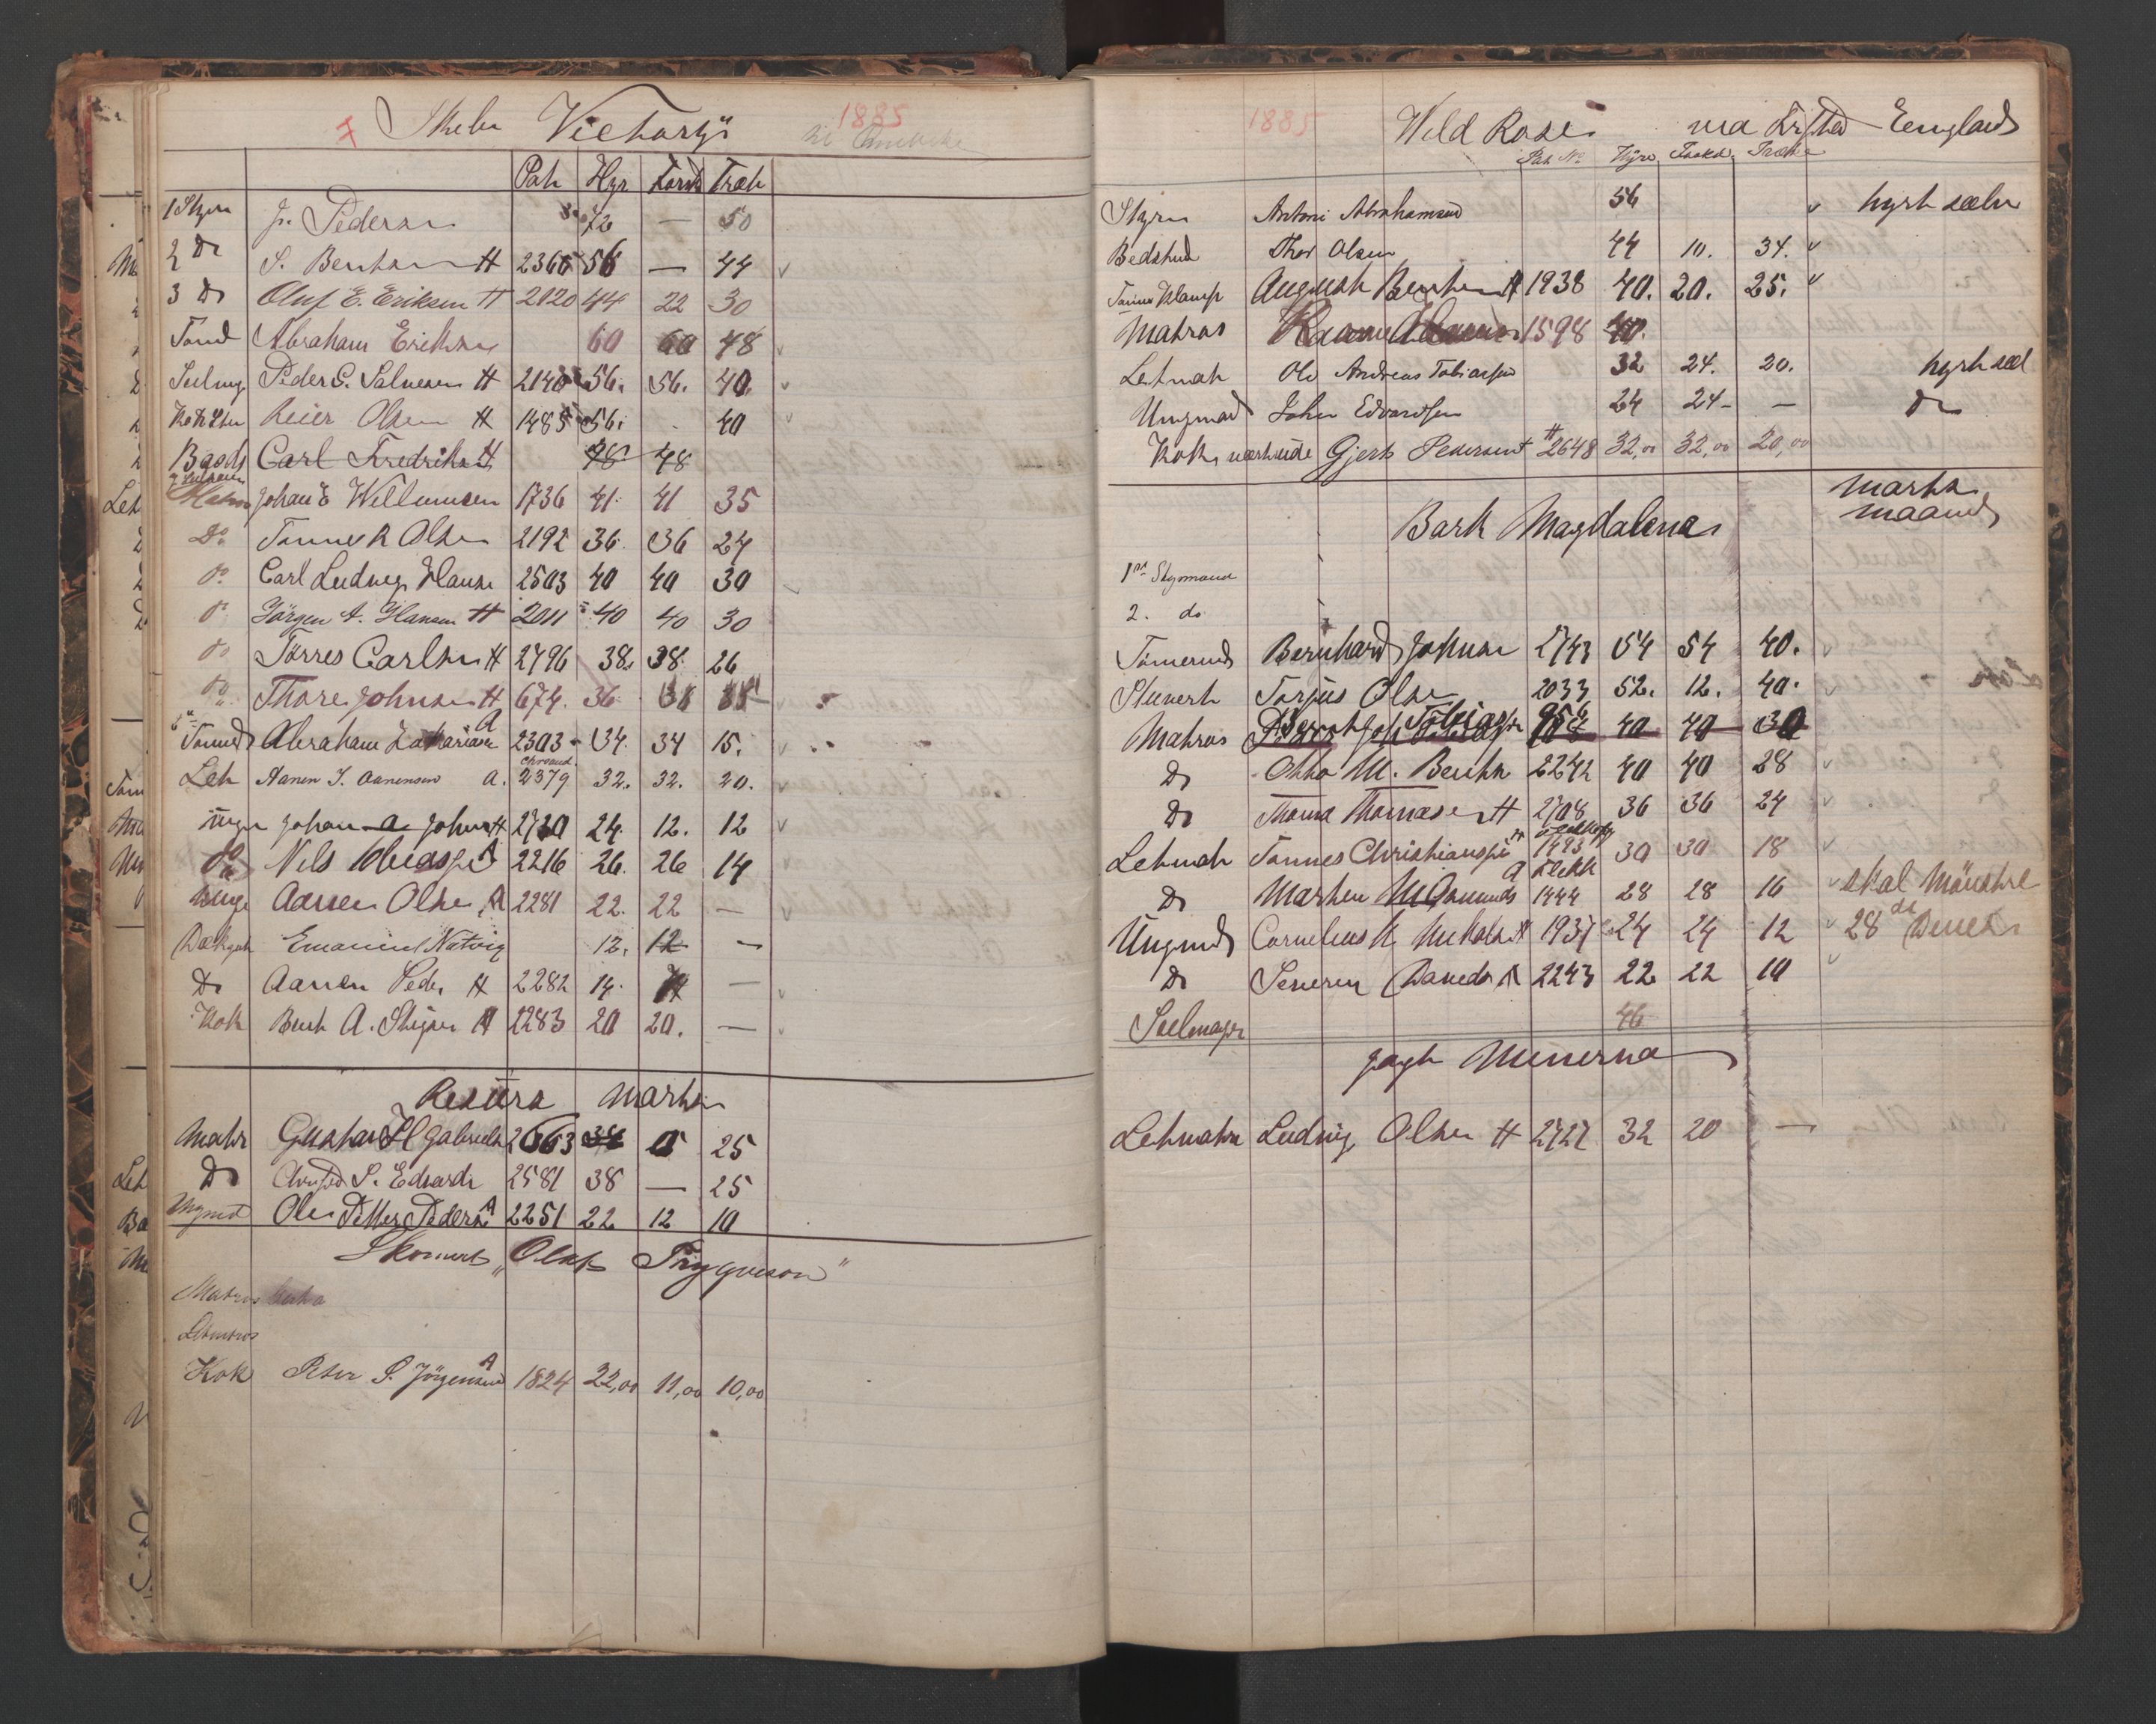 7 Skebn Victorys 1885
Pat Hyr Forsk Træk
1 Styrm J. Pedersen 72 — 50
2 Do S. Bentsen H 2366 56 — 44
3 Do Oluf E. Eriksen H 2120 44 22 30
Tømd Abraham Eriksen 60 60 48
Seilmag Peder G. Salvesen H 2140 56. 56. 40.
Kok Stu Reier Olsen H 1485 56. 40
Baads Carl Fredriksen H 48 48
Johan E Willumsen 1736 41. 41 35
Do Tønnes R Olsen 2192 36. 36 24
Do Carl Ludvig Hansen 2503 40 40 30
Do Jörgen A. Hansen H 2011 40 40 30
Do Tørres Carlsen H 2796 38. 38. 26
Do Thore Johnsen H 674. 36
Tømmd Abraham Zakariasen A 2303 34. 34 15.
Chrsand
Let Aanen J. Aanensen A. 2379 32. 32. 20.
Ungm Johan A Johnsen H 2730 24. 12. 12
Do Nils Tobiassen A 2216 26. 26 14
Unge Aanen Olsen A 2281 22. 22 —
Dæksgut Emanuel Natvig 12. 12 —
Do Aanen Peder H 2282 14. 14 —
Kok Bent A. Stigsen A 2283 20 20. —
Resürs Marts
Matr Gustav H Gabriels 2663 34 15 25
Do Chrsted S. Edvards 2581 38 — 25
Ungmd Ole Petter Pedersen A 2251 22 12 10
Skonnert "Olaf Trygveson"
Matros
Letmatros
Kok Peter P. Jörgensen A 1824 22,00 11,00 10,00
1885 Wild Rose via Kr.sted England
Pat No Hyre Forskd Trække
Styrm Antoni Abrahamsen 56 hyrt sælv
Bedstmd Thor Olsen 44 10. 34.
Tømmermand August Bentsen A 1938 40. 20. 25.
Matros 1598 40.
Letmat Ole Andreas Tobiassen 32 24. 20. hyrt sæl
Ungmand John Edvardsen 24 24 — — Do
Kok Gjert Pedersen H 2648 32,00 32,00 20,00
Bark Magdalena Marts maaned
1ste Styrmand
2. do
Tømermd Bernhard Johnsen 2743 54 54 40.
Stuvert Torjus Olsen 2033 52. 12. 40.
Matros 40 40 30
Do Otto M. Bentsen 2242 40 40 28
Do Thomas Thomasen H 2708 36 36 24
Letmat Tønnes Christiansen H 1423 30 30 18
A Flekk
Do Marten M Osmunds 1444 28 28 16 skal Mönstre
Ungmd Cornelius K 1937 24 24 12 28 de Denes
Do Severin Daniels A 2243 22 22 10
Seelmager 46
Jagt Minerva
Letmatr Ludvig Olsen H 2727 32 20 —